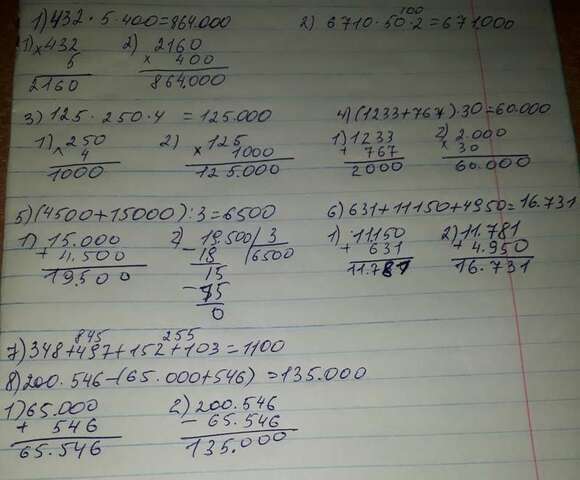 1) 432 · 5 · 400 = 864.000
2) 6710 · 50 · 2 = 671000
100
1) × 432
5
2160
2) 2160
× 400
864,000
3) 125 · 250 · 4 = 125.000
1) 250
× 4
1000
2) 125
× 1000
125.000
4) (1233 + 767) · 30 = 60.000
1) 1233
+ 767
2000
2) 2.000
× 30
60.000
5) (4500 + 15000) : 3 = 6500
1) 15.000
+ 4.500
19.500
2) 19.500 / 3
- 18 6500
15
- 15
0
6) 631 + 11150 + 4950 = 16.731
1) 11150
+ 631
11.781
2) 11.781
+ 4.950
16.731
845 255
7) 348 + 497 + 152 + 103 = 1100
8) 200.546 - (65.000 + 546) = 135.000
1) 65.000
+ 546
65.546
2) 200.546
- 65.546
135.000